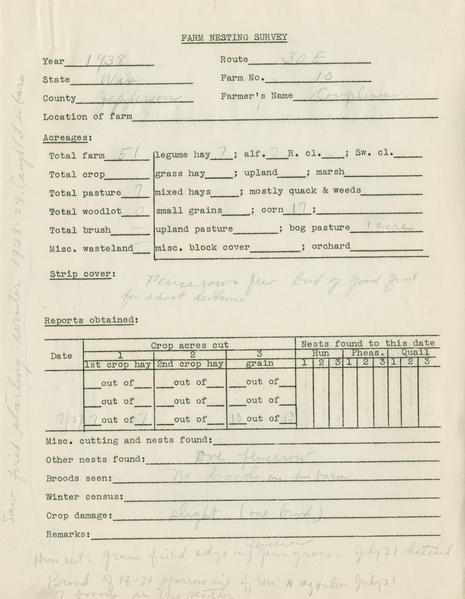 FARM NESTING SURVEY
Year 1938 Route 30E
State Wis. Farm No. 10
County Jefferson Farmer's Name
Location of farm
Acreages:
Total farm 51 legume hay 7; alf. 7 R. cl. ; Sw. cl.
Total crop grass hay ; upland ; marsh
Total pasture 7 mixed hays ; mostly quack & weeds
Total woodlot 0 small grains ; corn 17;
Total brush — upland pasture ; bog pasture 1 acre
Misc. wasteland — misc. block cover ; orchard
Strip cover: Fencerows few but of good
for short distance.
Reports obtained:
Date Crop acres cut Nests found to this date
1 2 3 Hun Pheas. Quail
1st crop hay 2nd crop hay grain 1 2 3 1 2 3 1 2 3
out of out of out of
out of out of out of
7/27 7 out of 7 out of 13 out of 13
Misc. cutting and nests found:
Other nests found: One fencerow
Broods seen: No broods on farm
Winter census:
Crop damage: slight (one bird)
Remarks:
fencerow
Hun nest: grain field edge in grass. July 21 hatched
Brood of 18-20 sparrow size ½ mi N July 21
7 broods in this section
Saw first starling winter 1928-29. Caught in barn.